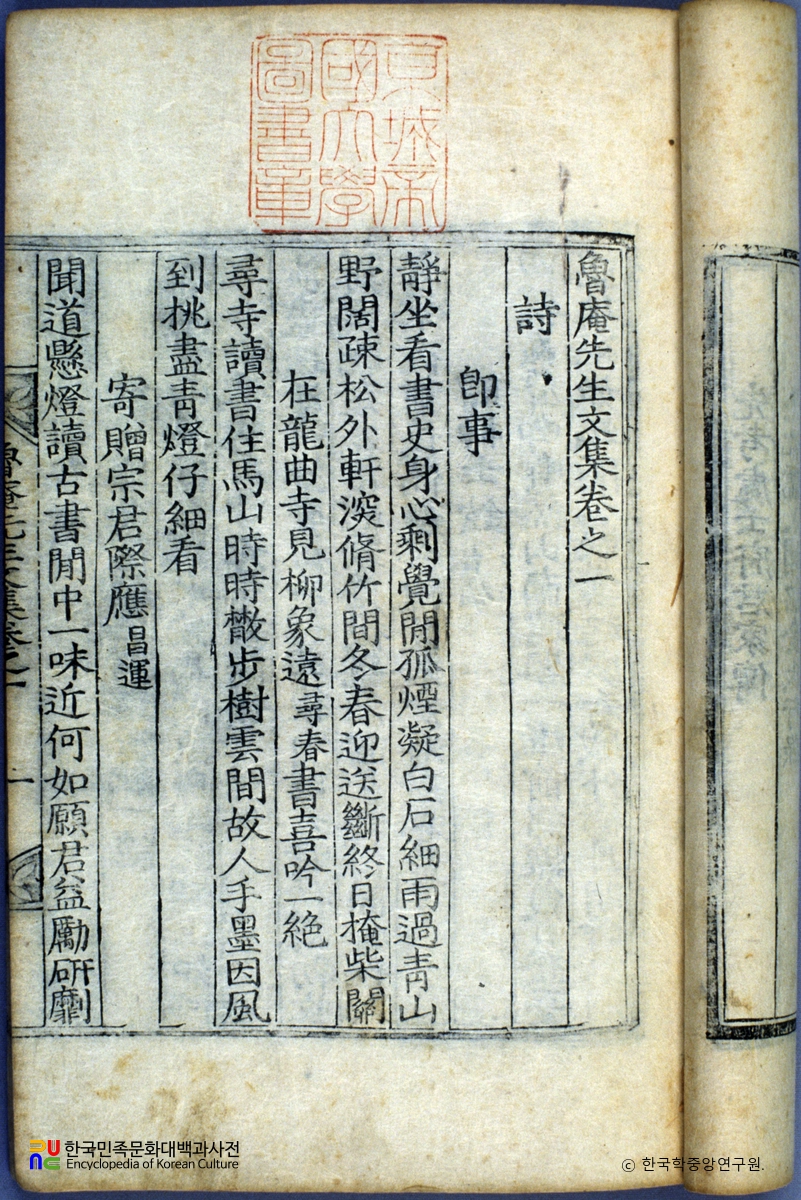 京城帝
國大學
圖書章
魯庵先生文集卷之一
詩
卽事
靜坐看書史身心剩覺閒孤煙凝白石細雨過靑山
野闊疎松外軒深脩竹間冬春迎送斷終日掩柴關
在龍曲寺見柳象遠尋春書喜吟一絶
尋寺讀書住馬山時時散步樹雲間故人手墨因風
到挑盡靑燈仔細看
寄贈宗君際應昌運
聞道懸燈讀古書閒中一味近何如願君益勵硏劘
魯庵先生文集卷之一
一
한국민족문화대백과사전
Encyclopedia of Korean Culture
ⓒ 한국학중앙연구원.